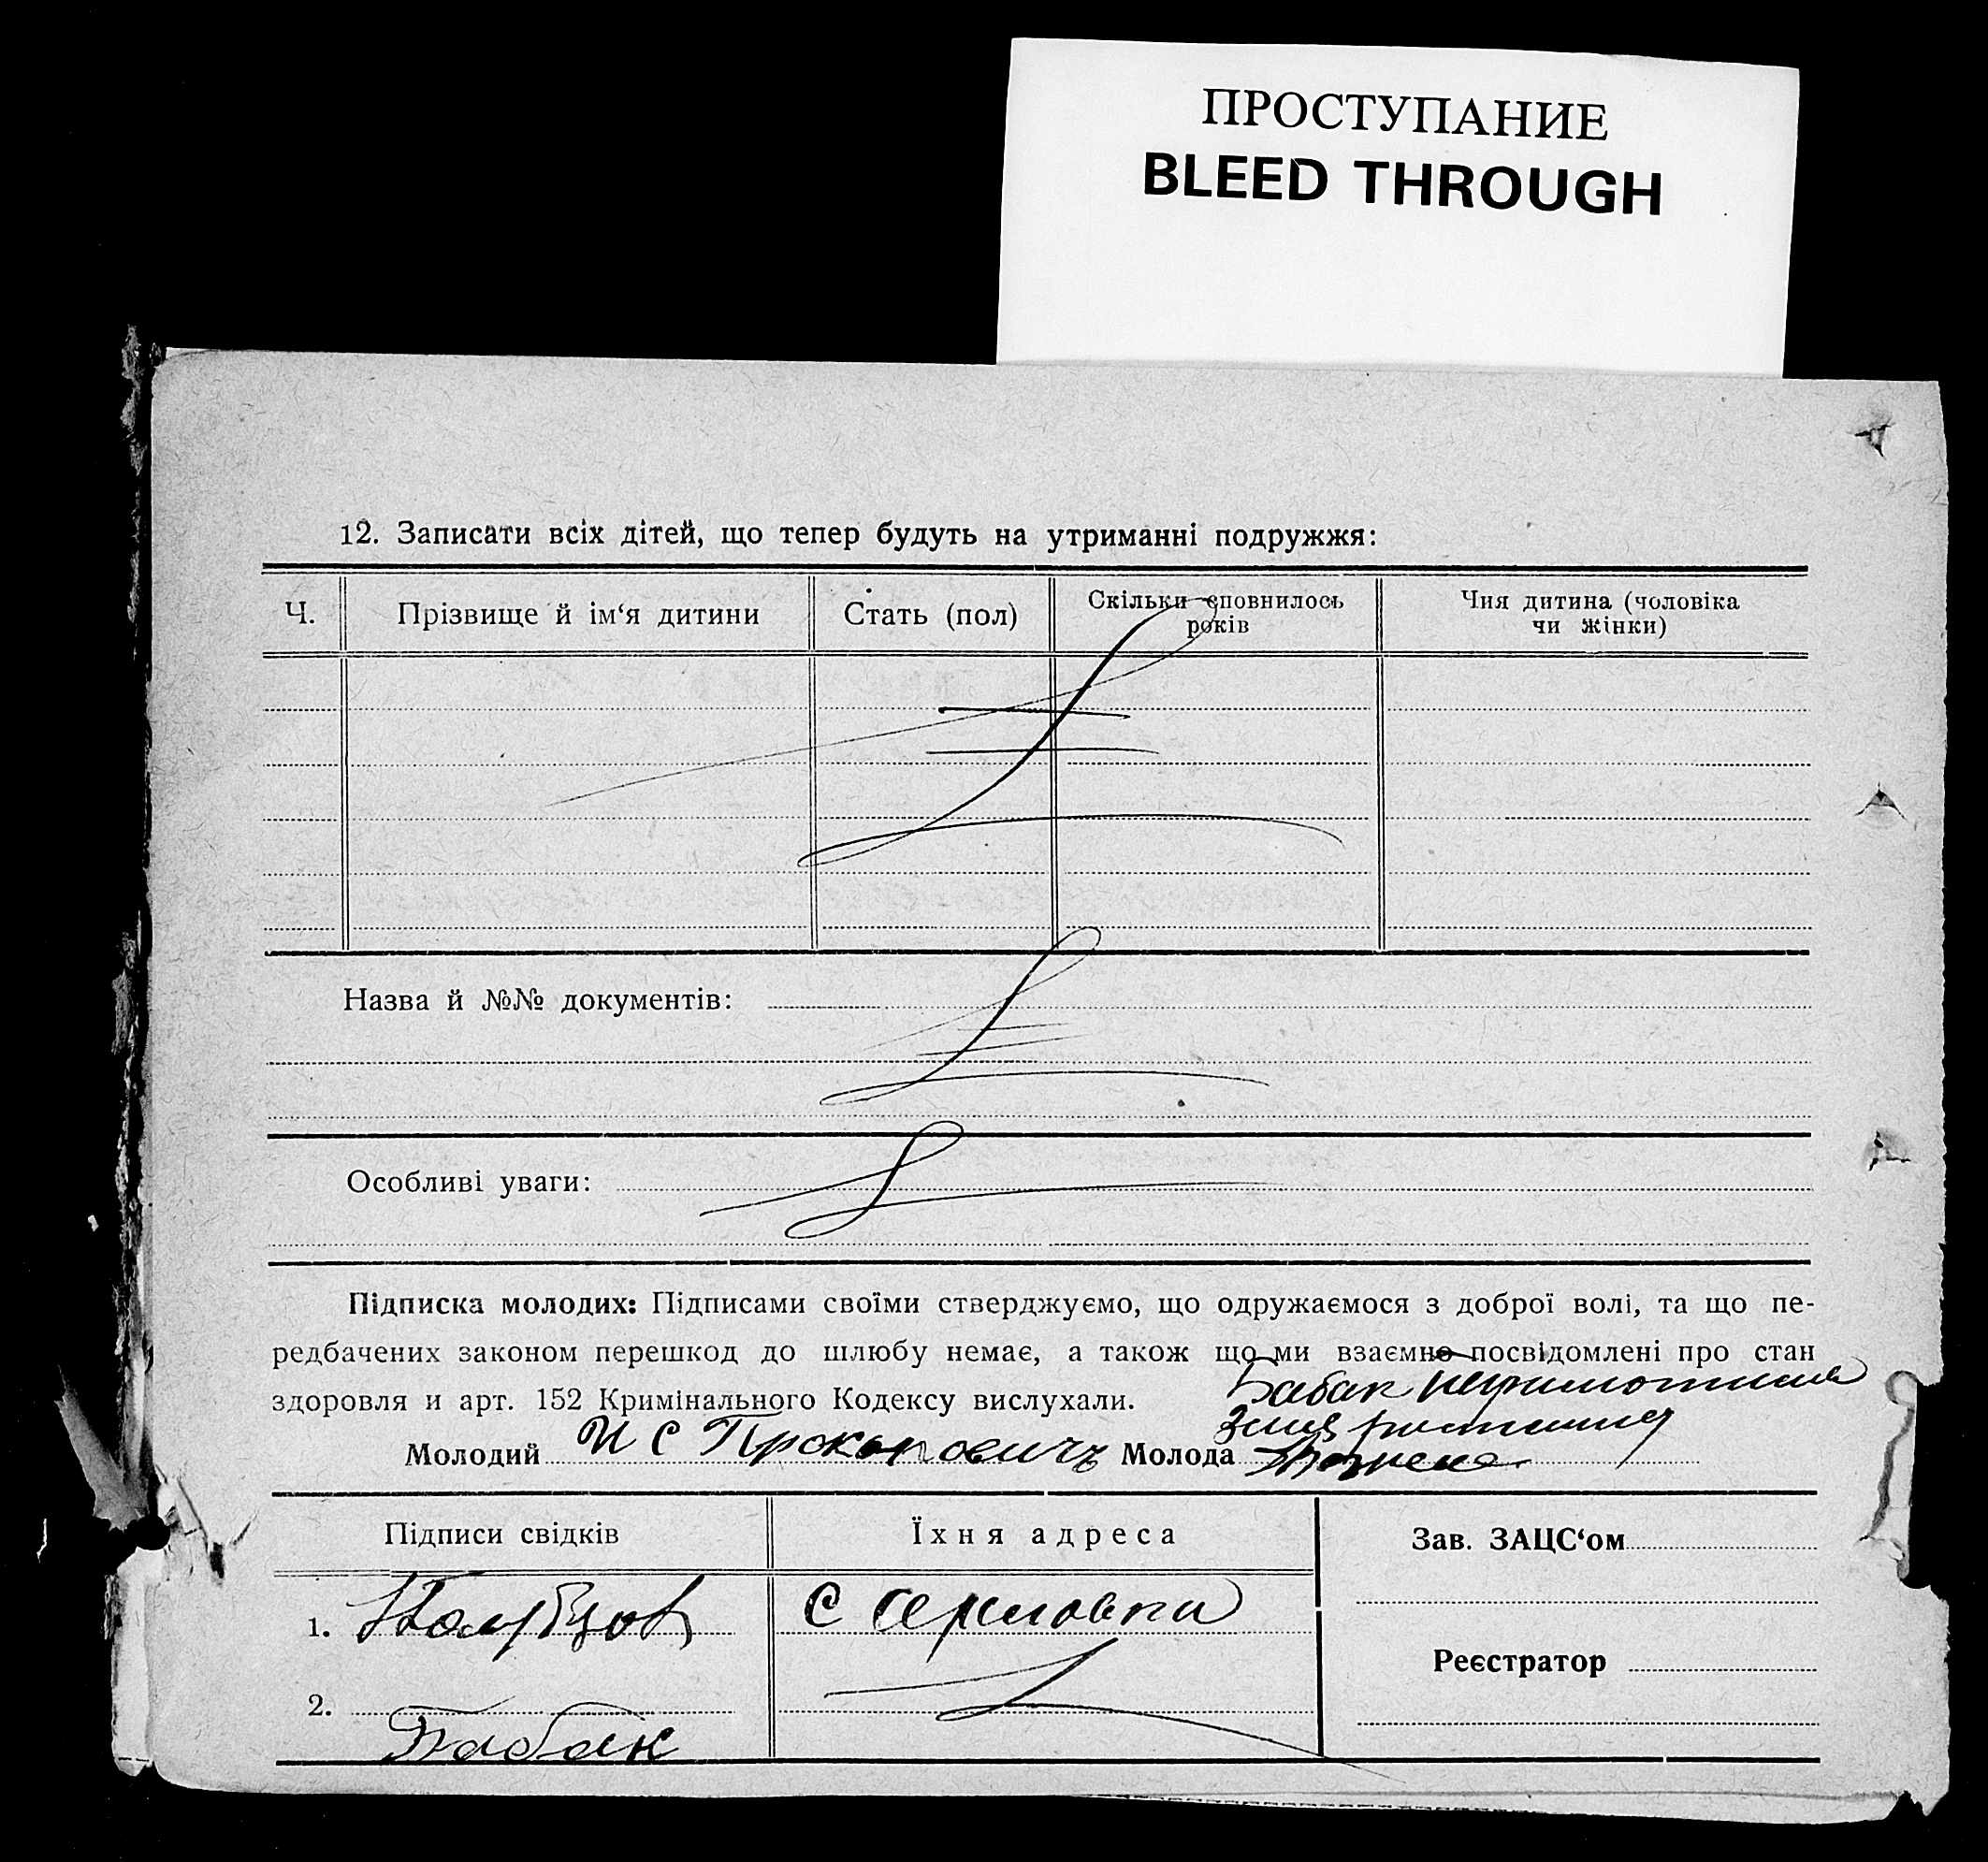 ПРОСТУПАНИЕ
BLEED THROUGH
12. Записати всіх дітей, що тепер будуть на утриманні подружжя:
Ч. Прізвище й ім‘я дитини Стать (пол) Скільки сповнилось років Чия дитина (чоловіка чи жінки)
Назва й №№ документів:
Особливі уваги:
Підписка молодих: Підписами своїми стверджуємо, що одружаємося з доброї волі, та що пе-
редбачених законом перешкод до шлюбу немає, а також що ми взаємно посвідомлені про стан
здоровля и арт. 152 Кримінального Кодексу вислухали.
Бабак неграмотная
Молодий И С Прокоповичъ Молода
Підписи свідків Їхня адреса Зав. ЗАЦС‘ом
1. с
Реєстратор
2. Бабак